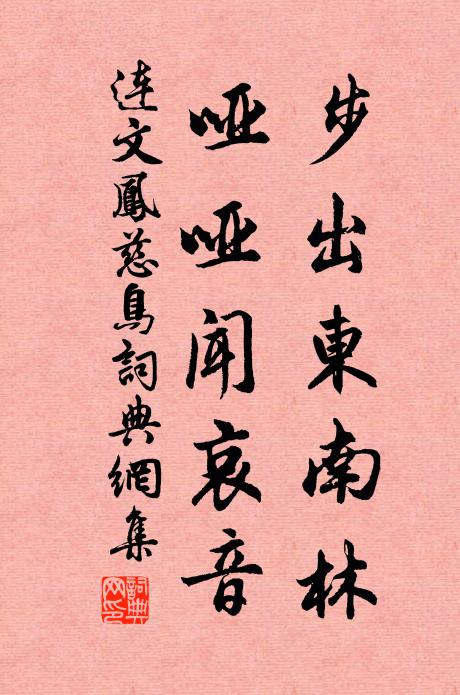 步出東南林
啞啞聞哀音
連文鳳慈烏詞典網集
詞典網印